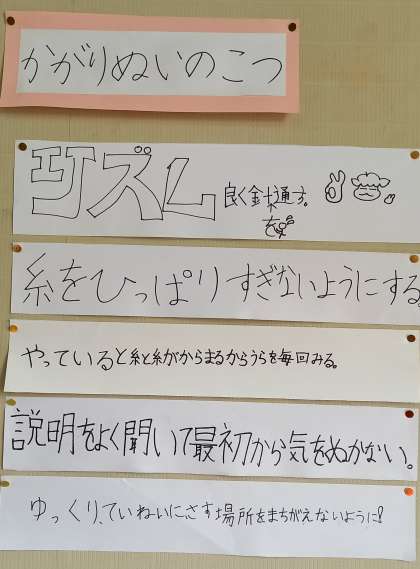 かがりぬいのこつ
リズム良く針を通す。
糸をひっぱりすぎないようにする
やっていると糸と糸がからまるからうらを毎回みる。
説明をよく聞いて最初から気をぬかない。
ゆっくり、ていねいにさす場所をまちがえないように!